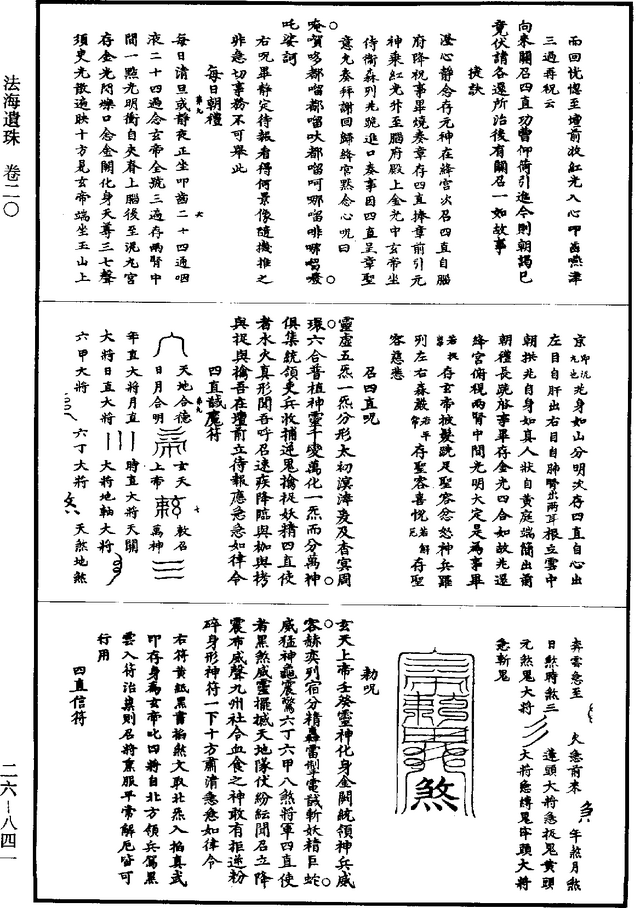 法海遺珠 卷二〇
二六—八四一
而回恍惚至壇前放紅光入心叩齒嚥津
三過再祝云
向來關召四直功曹仰荷引進今則朝謁已
竟伏請各還所治後有關召一如故事
捷訣
澄心静念存元神在絳宮次召四直自腦
府降祝事畢燒奏章存四直捧章前引元
神乘紅光升至腦府殿上金光中玄帝坐
侍衛森列先號進口奏事因四直呈章聖
意允奏拜謝回歸絳宮默念心呪曰
唵賀哆都囉都囉吠都囉呵哪囉啡哪囉嚩
吒娑訶
右呪畢靜定待報看得何景像隨機推之
非急切事務不可舉此
每日朝禮
每日清旦或静夜正坐叩齒二十四通咽
液二十四過念玄帝全號三遍存兩腎中
間一點光明衝自夾脊上腦後至泥丸宮
存金光閃爍口念金闕化身天尊三七聲
須臾光散遍映十方見玄帝端坐玉山上
京即泥丸也光身如山分明次存四直自心出
左目自肝出右目自肺腎出兩耳根立雲中
朝拱光自身如真人狀自黃庭端簡出前
朝禮長跪啟事畢存金光四合如故光還
絳宮俯視兩腎中間光明大定是為事畢
存玄帝披髮跣足聖容忿怒神兵羅
列左右森嚴若平常存聖容喜悅若解厄存聖
容慈悉
召四直呪
靈虛五炁一炁分形太初溟涬麦及杳冥周
環六合普植神靈千變萬化一炁而分萬神
俱集統領吏兵收捕逆鬼擒捉妖精四直使
者水火真形聞吾呼召速疾降臨與枷與栲
與捉與擒吾在壇前立待報應急急如律令
四直誡魔符
天地合德
日月合明
玄天
上帝
敕召
萬神
年直大將月直
大將日直大將
時直大將天關
大將地軸大將
六甲大將
六丁大將
天煞地煞
奔雲急至
火急前來
年煞月煞
日煞時煞三
元煞鬼大將
蓬頭大將急捉鬼黄頭
大將急縛鬼牢頭大將
急斬鬼
煞
勑呪
玄天上帝壬癸靈神化身金闕統領神兵威
容赫奕列宿分精轟雷掣電誡斬妖精巨蛇
威猛神龜震驚六丁六甲八煞將軍四直使
者黑煞威靈擺撼天地隊仗紛紜聞召立降
震布威聲九州社令血食之神敢有拒逆粉
碎身形神符一下十方肅清急急如律令
右符黃紙黑書掐煞文取北炁入掐真武
印存身為玄帝叱四將自北方領兵駕黑
雲入符治祟則召將熏服平常解厄皆可
行用
四直信符